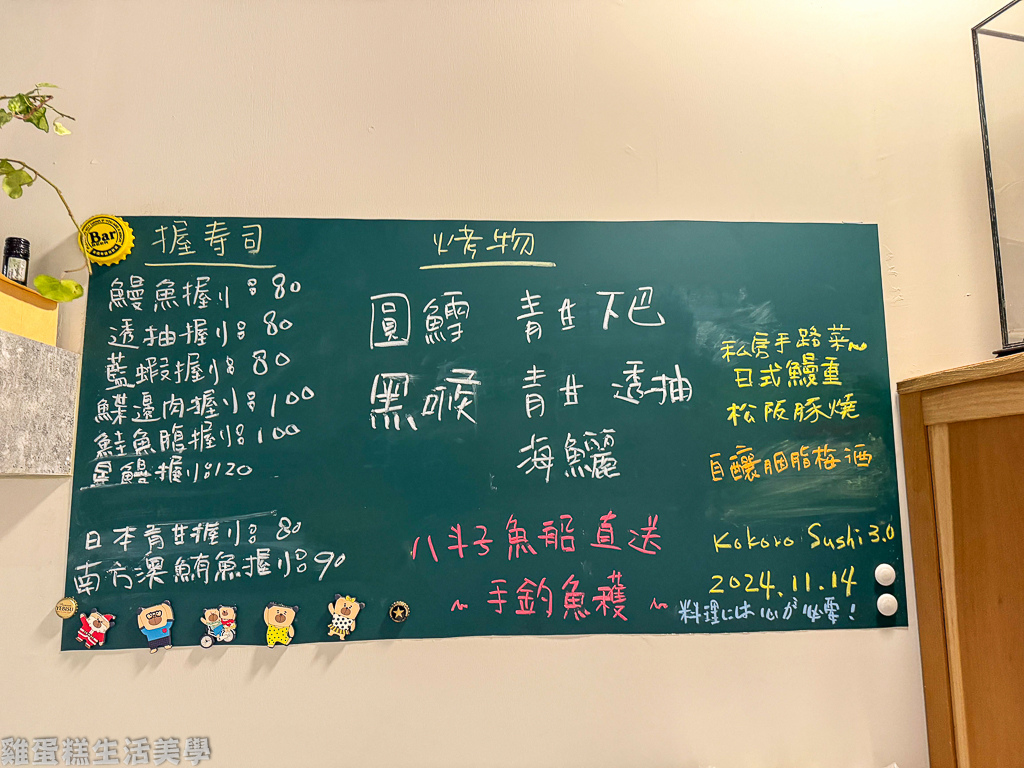 Bar
握寿司
鰻魚握り 80
透抽握り 80
藍蝦握り 80
鰈邊肉握り 100
鮭魚腹握り 100
星鰻握り 120
日本青甘握り 80
南方澳鮪魚握り 90
烤物
圓鱈 青甘下巴
黑喉 青甘 透抽
海鱺
八斗子魚船直送
~手釣魚穫~
私房手路菜~
日式鰻重
松阪豚燒
自釀胭脂梅酒
Kokoro Sushi 3.0
2024.11.14
料理には心が必要!
雞蛋糕生活美學